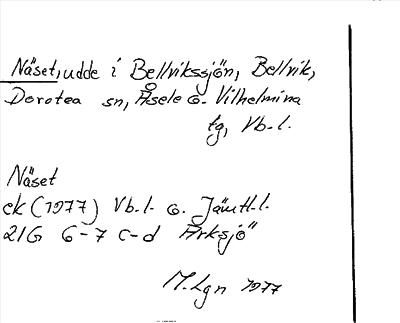 Näset, udde i Bellvikssjön, Bellvik,
Dorotea sn, Åsele o. Vilhelmina
tg, Vb.l.
Näset
ek (1977) Vb.l. o. Jämtl.l.
21G 6-7 c-d Arksjö
M.Lgn 1977